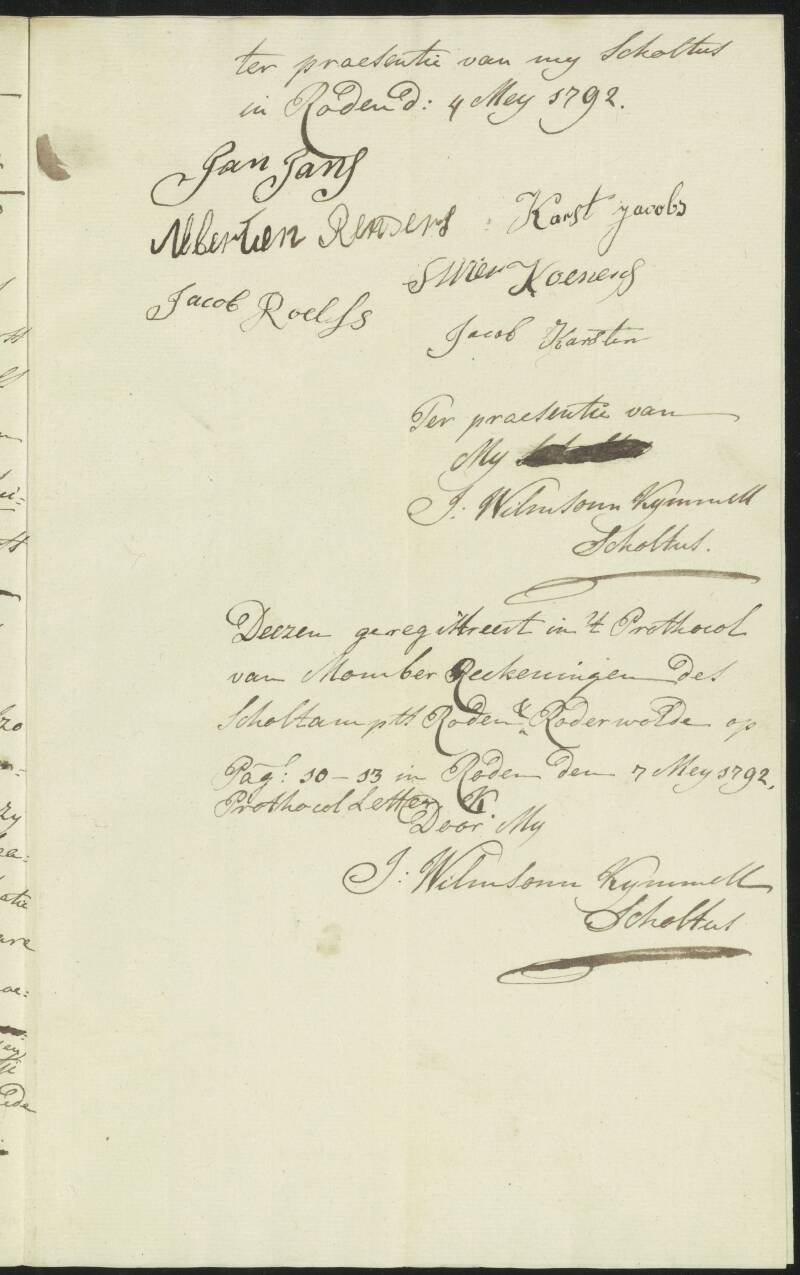 ter praesentie van my Scholtus
in Roden d: 4 Mey 1792.
Jan Jans
Albertien Reinders
Karst jacobs
Swier Koenens
Jacob Roelfs
Jacob Karsten
Ter praesentie van
My
J: Wilmsonn Kymmell
Scholtus.
Deezen geregistreert in 't Prothocol
van Momber Reekeningen des
Scholtampts Roden & Roderwolde op
Pag: 10-13 in Roden den 7 Mey 1792.
Prothocol Letter K.
Door My
J: Wilmsonn Kymmell
Scholtus